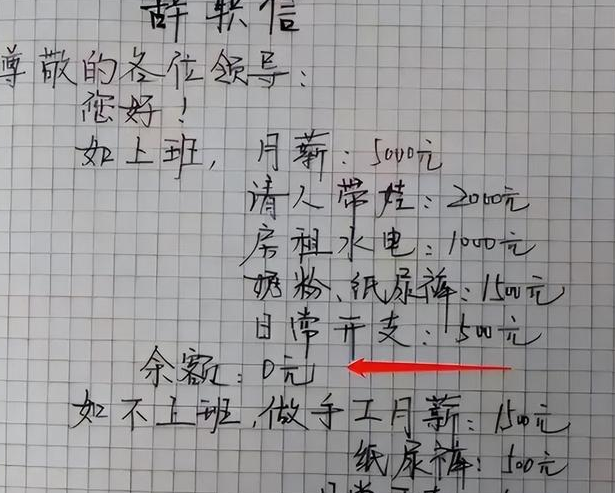 辞职信
尊敬的各位领导：
您好！
如上班，月薪：5000元
请人带娃：2000元
房租水电：1000元
奶粉、纸尿裤：1500元
日常开支：500元
余额：0元
如不上班，做手工月薪：1500元
纸尿裤：500元